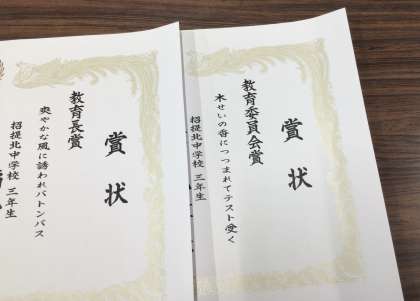 賞状
教育委員会賞
木せいの香につつまれてテスト受く
招提北中学校 三年生
賞状
教育長賞
爽やかな風に誘われバトンパス
招提北中学校 三年生